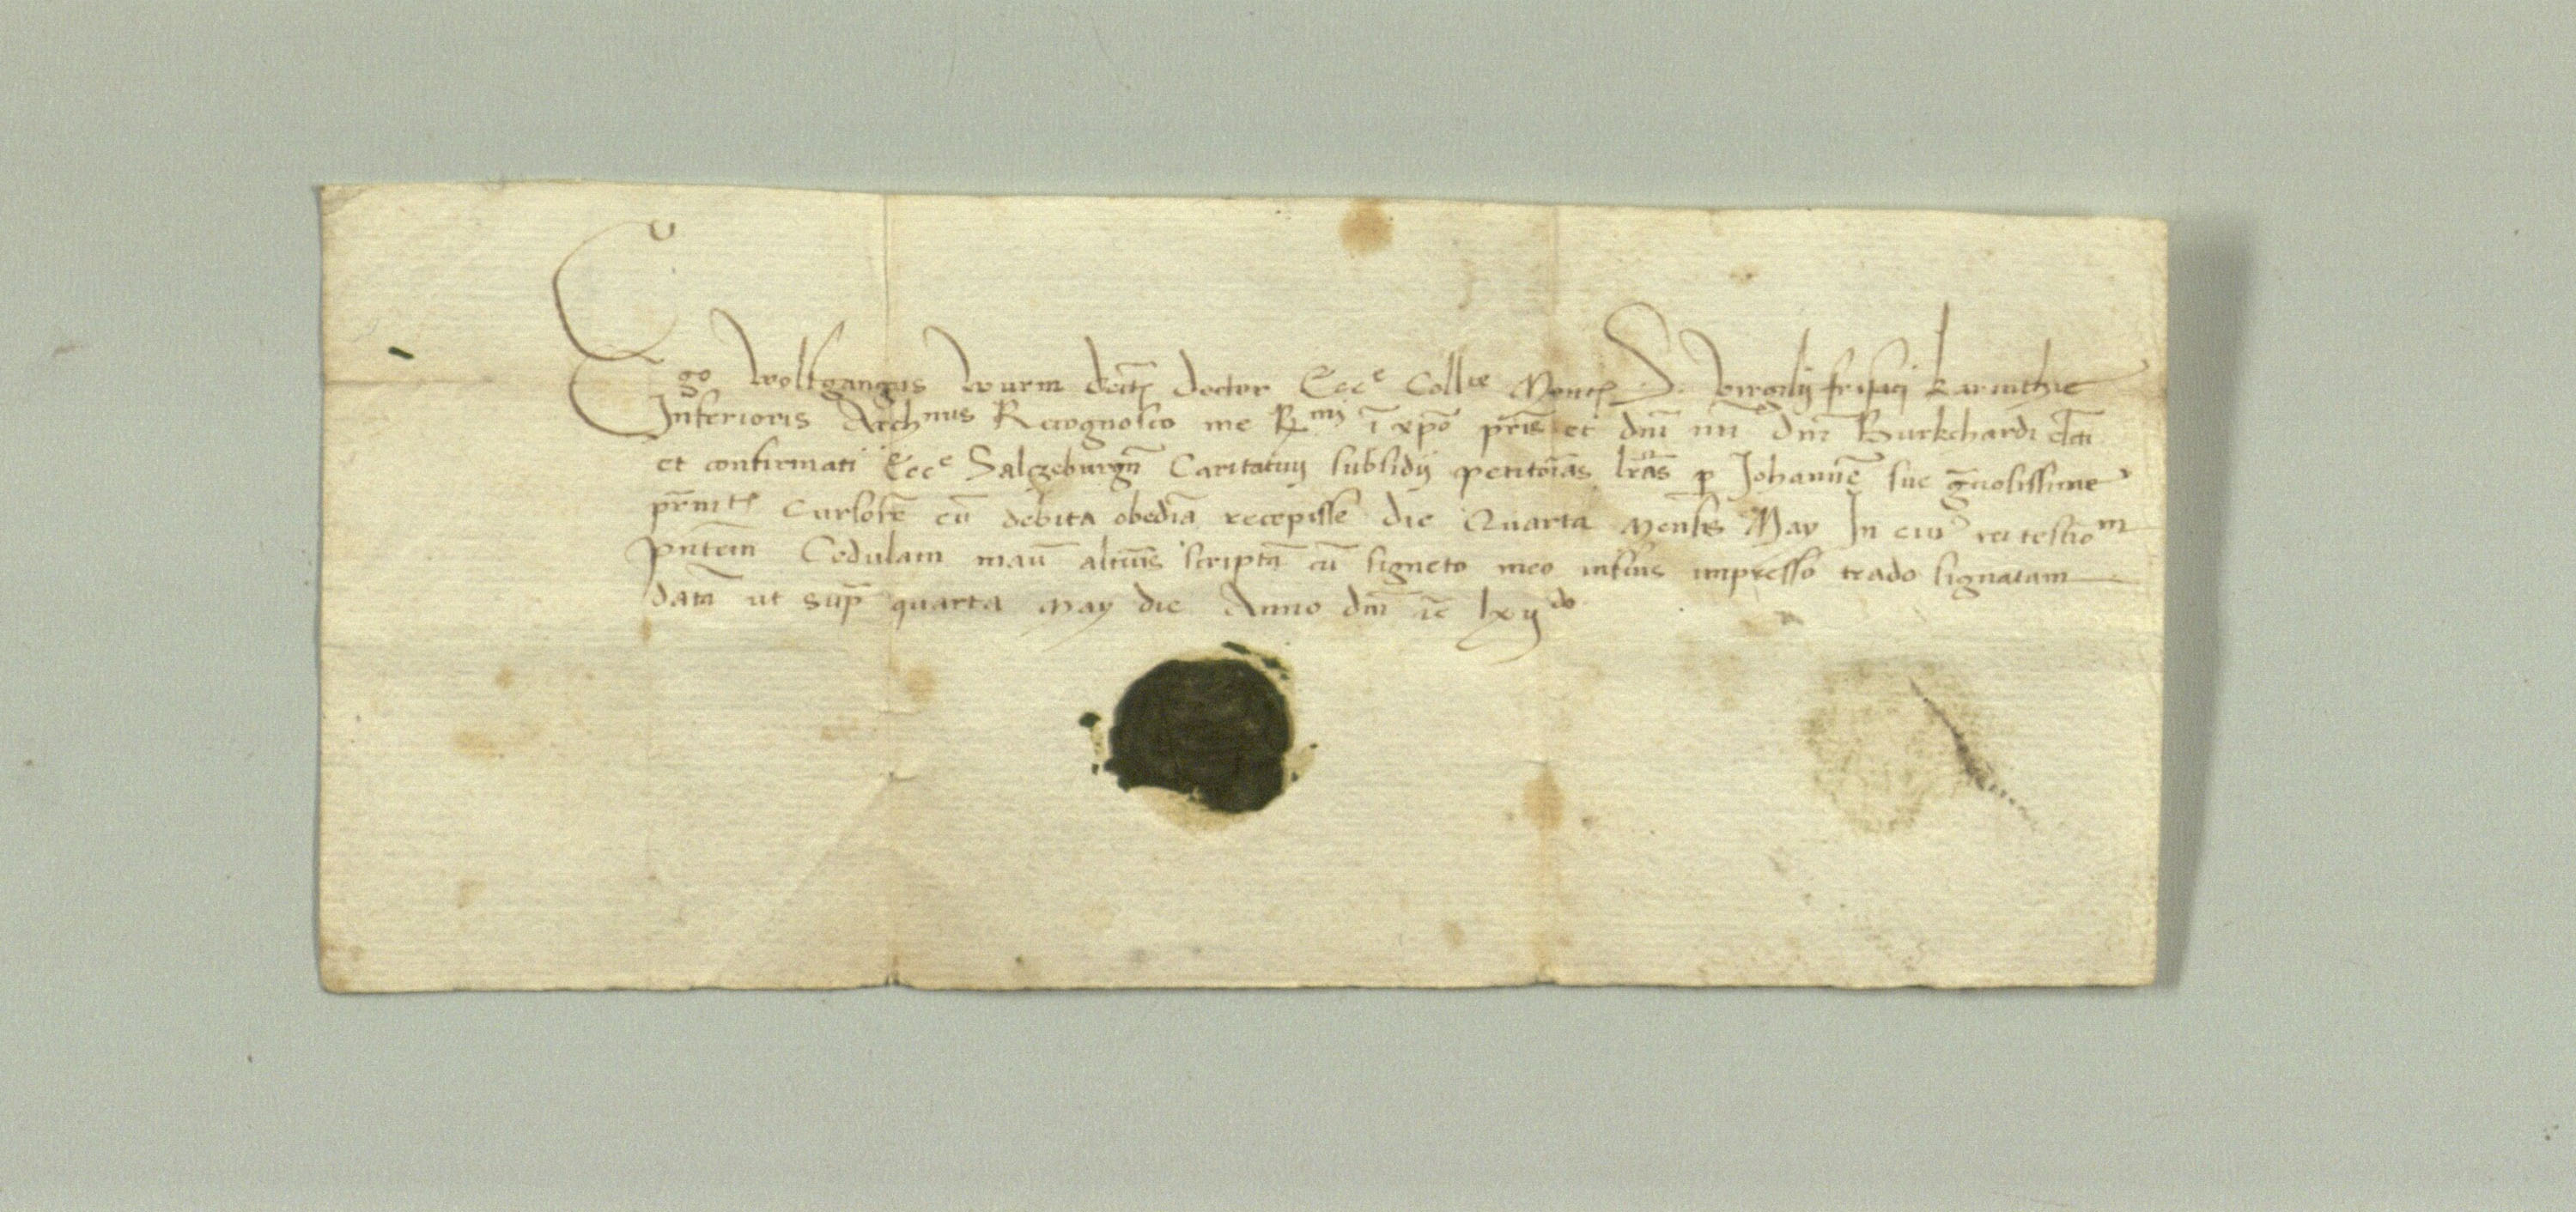 Ego Wolfgangus Wurm decretor̃ doctor Ecc^e Coll^te Mont̃ S. Virgilij frisaci karinthie
Inferioris Arch^nus Recognosco me R^mi ĩ xpõ pris̃ et dñi nñi dñi Burkchardi elc̃ti
et confirmati Ecc^e Salczeburgñ Caritatiuj subsidij petitorias̃ lr̃as p Johannẽ sue gr̃osissime
Cursorẽ cũ debita obediã recepisse die Quarta Mensis May In cuiꝰ rei testio^m
pñtem Cedulam manũ alterius̃ scriptã cũ signeto meo inferius impresso trado signatam
datã ut supr̃ quarta May die Anno dñi ꝛc̃ lxij^do